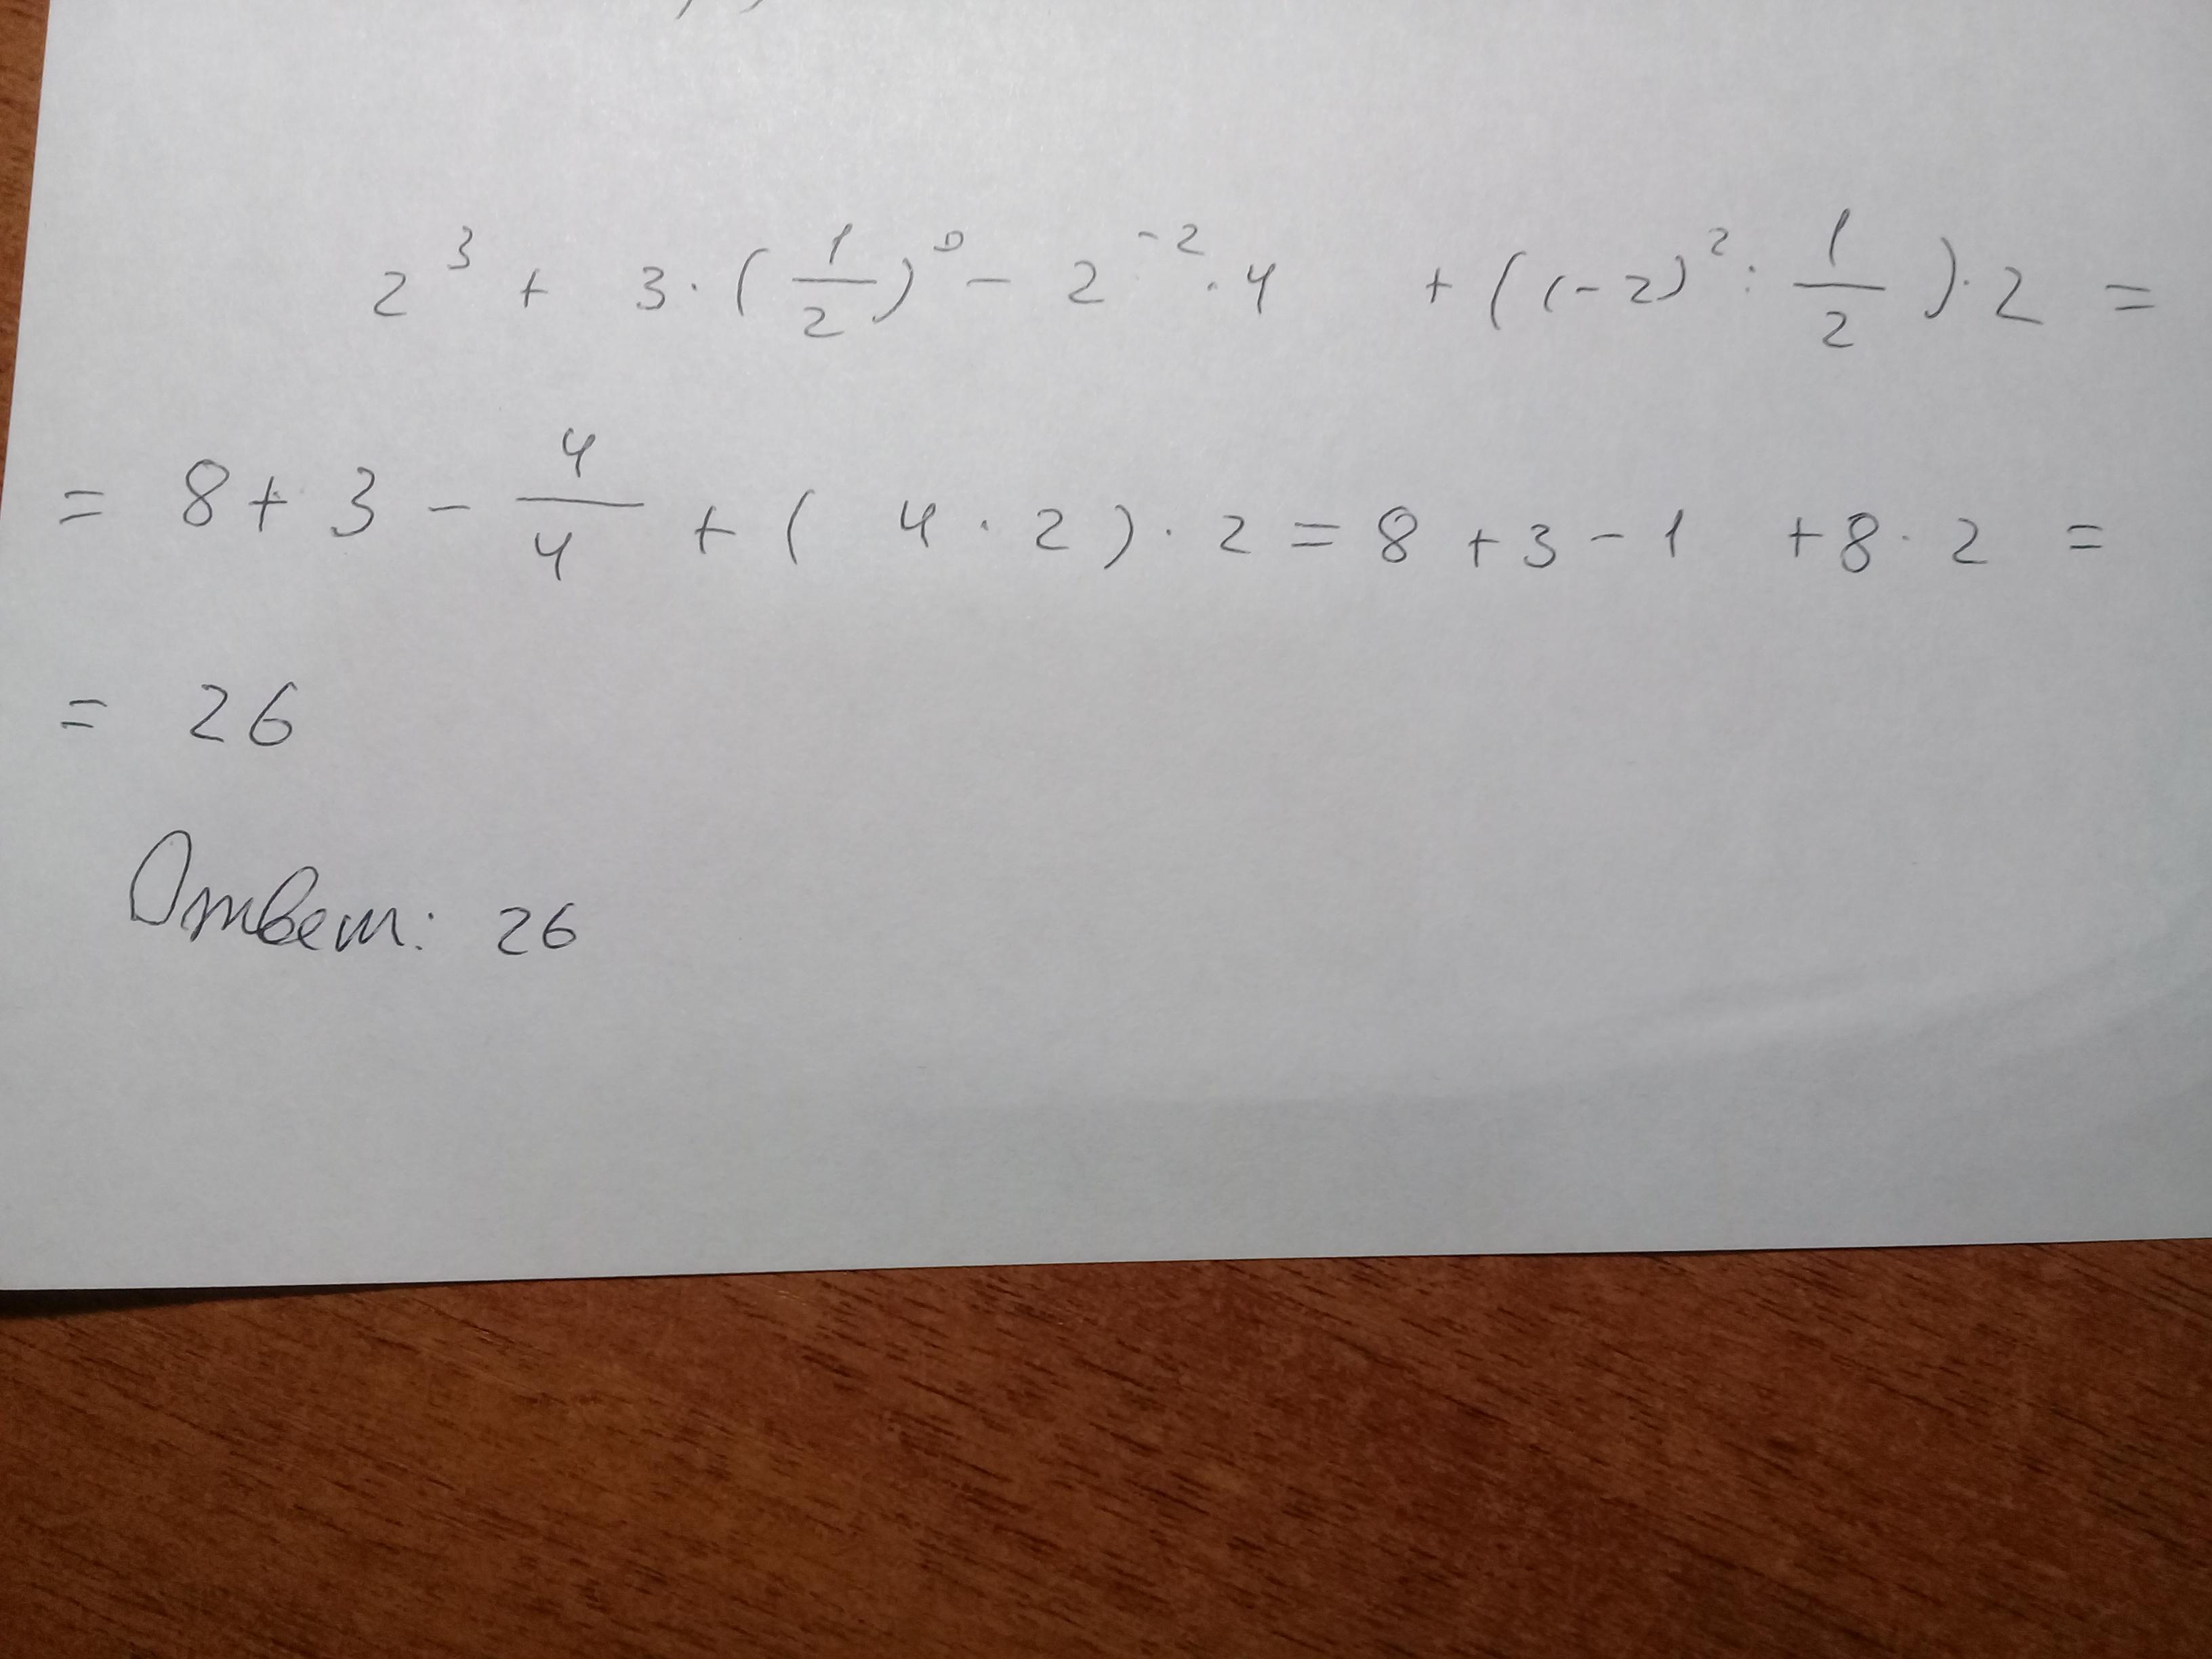 2³ + 3 · (1/2)⁰ - 2⁻² · 4 + ((-2)² : 1/2) · 2 =
= 8 + 3 - 4/4 + ( 4 · 2 ) · 2 = 8 + 3 - 1 + 8 · 2 =
= 26
Ответ: 26